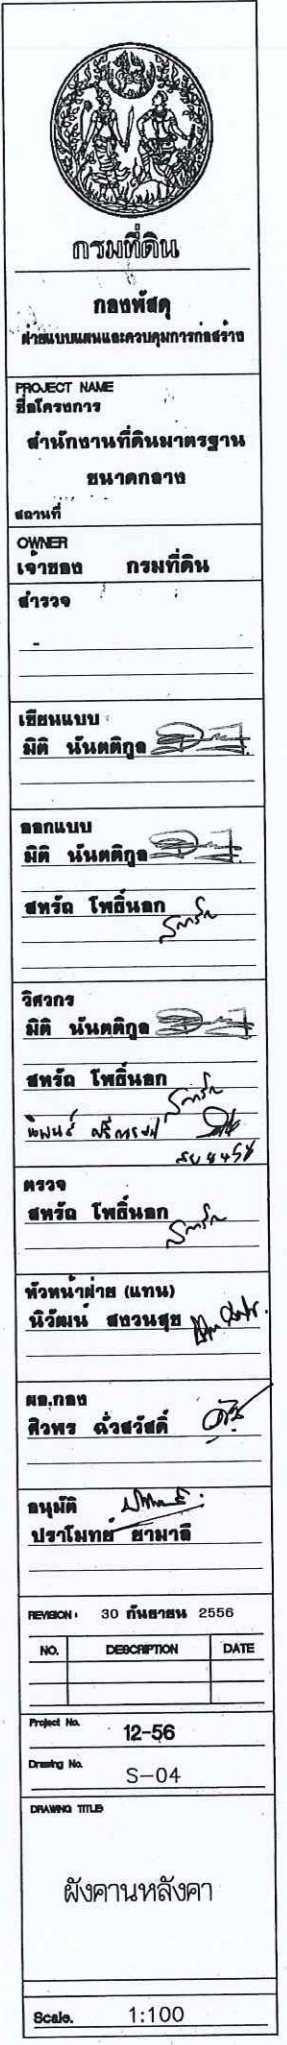 กรมที่ดิน
กองพัสดุ
ฝ่ายแบบแผนและควบคุมการก่อสร้าง
PROJECT NAME
ชื่อโครงการ
สำนักงานที่ดินมาตรฐาน
ขนาดกลาง
สถานที่
OWNER
เจ้าของ กรมที่ดิน
สำรวจ
-
เขียนแบบ
มิติ นันตติกูล
ออกแบบ
มิติ นันตติกูล
สหรัถ โพธิ์นอก
วิศวกร
มิติ นันตติกูล
สหรัถ โพธิ์นอก
ตรวจ
สหรัถ โพธิ์นอก
หัวหน้าฝ่าย (แทน)
นิวัฒน์ สงวนสุข
ผอ.กอง
ศิวพร ฉั่วสวัสดิ์
อนุมัติ
ปราโมทย์ ยามาลี
REVISION : 30 กันยายน 2556
NO. DESCRIPTION DATE
Project No.
12-56
Drawing No.
S-04
DRAWING TITLE
ผังคานหลังคา
Scale. 1:100